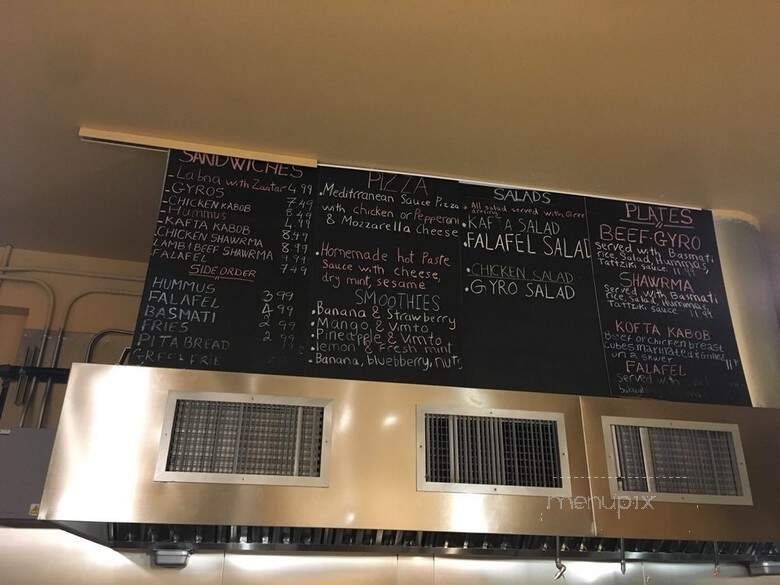 SANDWICHES
- Labna with Zaatar 4.99
- GYROS 7.49
- CHICKEN KABOB
- Hummus
- KAFTA KABOB
- CHICKEN SHAWRMA 8.99
- LAMB & BEEF SHAWRMA
FALAFEL 7.49
SIDE ORDER
HUMMUS 3.99
FALAFEL 4.99
BASMATI 2.99
FRIES
PITA BREAD
GREEK FRIE
PIZZA
• Meditrranean Sauce Pizza
with chicken or Pepperoni
& Mozzarella cheese
• Homemade hot Paste
Sauce with cheese,
dry mint, sesame
SMOOTHIES
• Banana & Strawberry
• Mango & Vimto
• Pineapple & Vimto
• lemon & Fresh mint
• Banana, bluebberry, nuts
SALADS
• All salad served with Greek
• KAFTA SALAD
• FALAFEL SALAD
• CHICKEN SALAD
• GYRO SALAD
PLATES
BEEF-GYRO
served with Basmati
rice, Salad, Hummus,
Tattziki sauce
SHAWRMA
Served with Basmati
rice, Salad, Hummus,
Tattziki sauce
KOFTA KABOB
Beef or Chicken breast
Cubes marinated & Grilled
on a skwer
FALAFEL
Served with
menupix